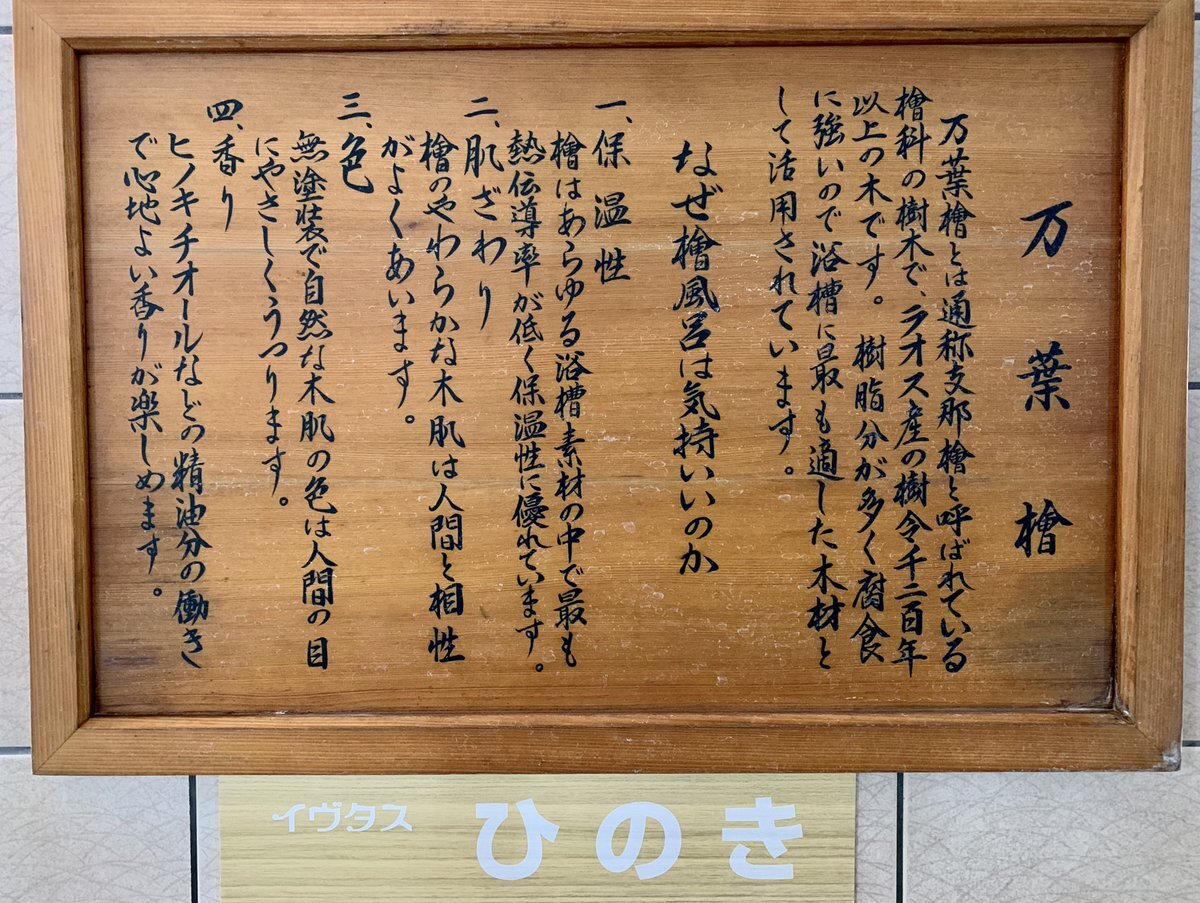 万葉檜
万葉檜とは通称支那檜と呼ばれている
檜科の樹木で、ラオス産の樹令千二百年
以上の木です。樹脂分が多く腐食
に強いので浴槽に最も適した木材と
して活用されています。
なぜ檜風呂は気持いいのか
一、保温性
檜はあらゆる浴槽素材の中で最も
熱伝導率が低く保温性に優れています。
二、肌ざわり
檜のやわらかな木肌は人間と相性
がよくあいます。
三、色
無塗装で自然な木肌の色は人間の目
にやさしくうつります。
四、香り
ヒノキチオールなどの精油分の働き
で心地よい香りが楽しめます。
イヴタス ひのき